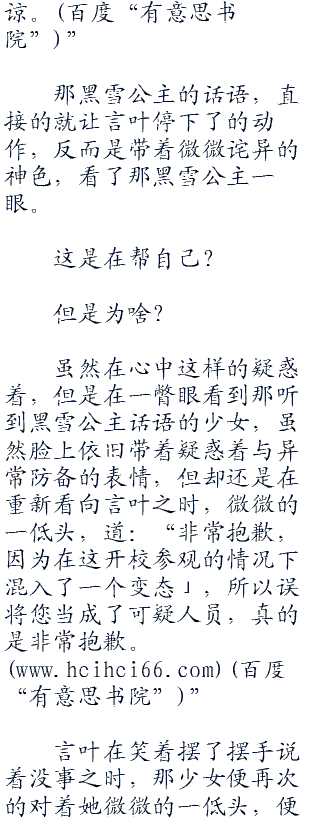 谅。(百度“有意思书
院”)”
那黑雪公主的话语，直
接的就让言叶停下了的动
作，反而是带着微微诧异的
神色，看了那黑雪公主一
眼。
这是在帮自己？
但是为啥？
虽然在心中这样的疑惑
着，但是在一瞥眼看到那听
到黑雪公主话语的少女，虽
然脸上依旧带着疑惑着与异
常防备的表情，但却还是在
重新看向言叶之时，微微的
一低头，道：“非常抱歉，
因为在这开校参观的情况下
混入了一个变态」，所以误
将您当成了可疑人员，真的
是非常抱歉。
(www.hcihci66.com)(百度
“有意思书院”)”
言叶在笑着摆了摆手说
着没事之时，那少女便再次
的对着她微微的一低头，便